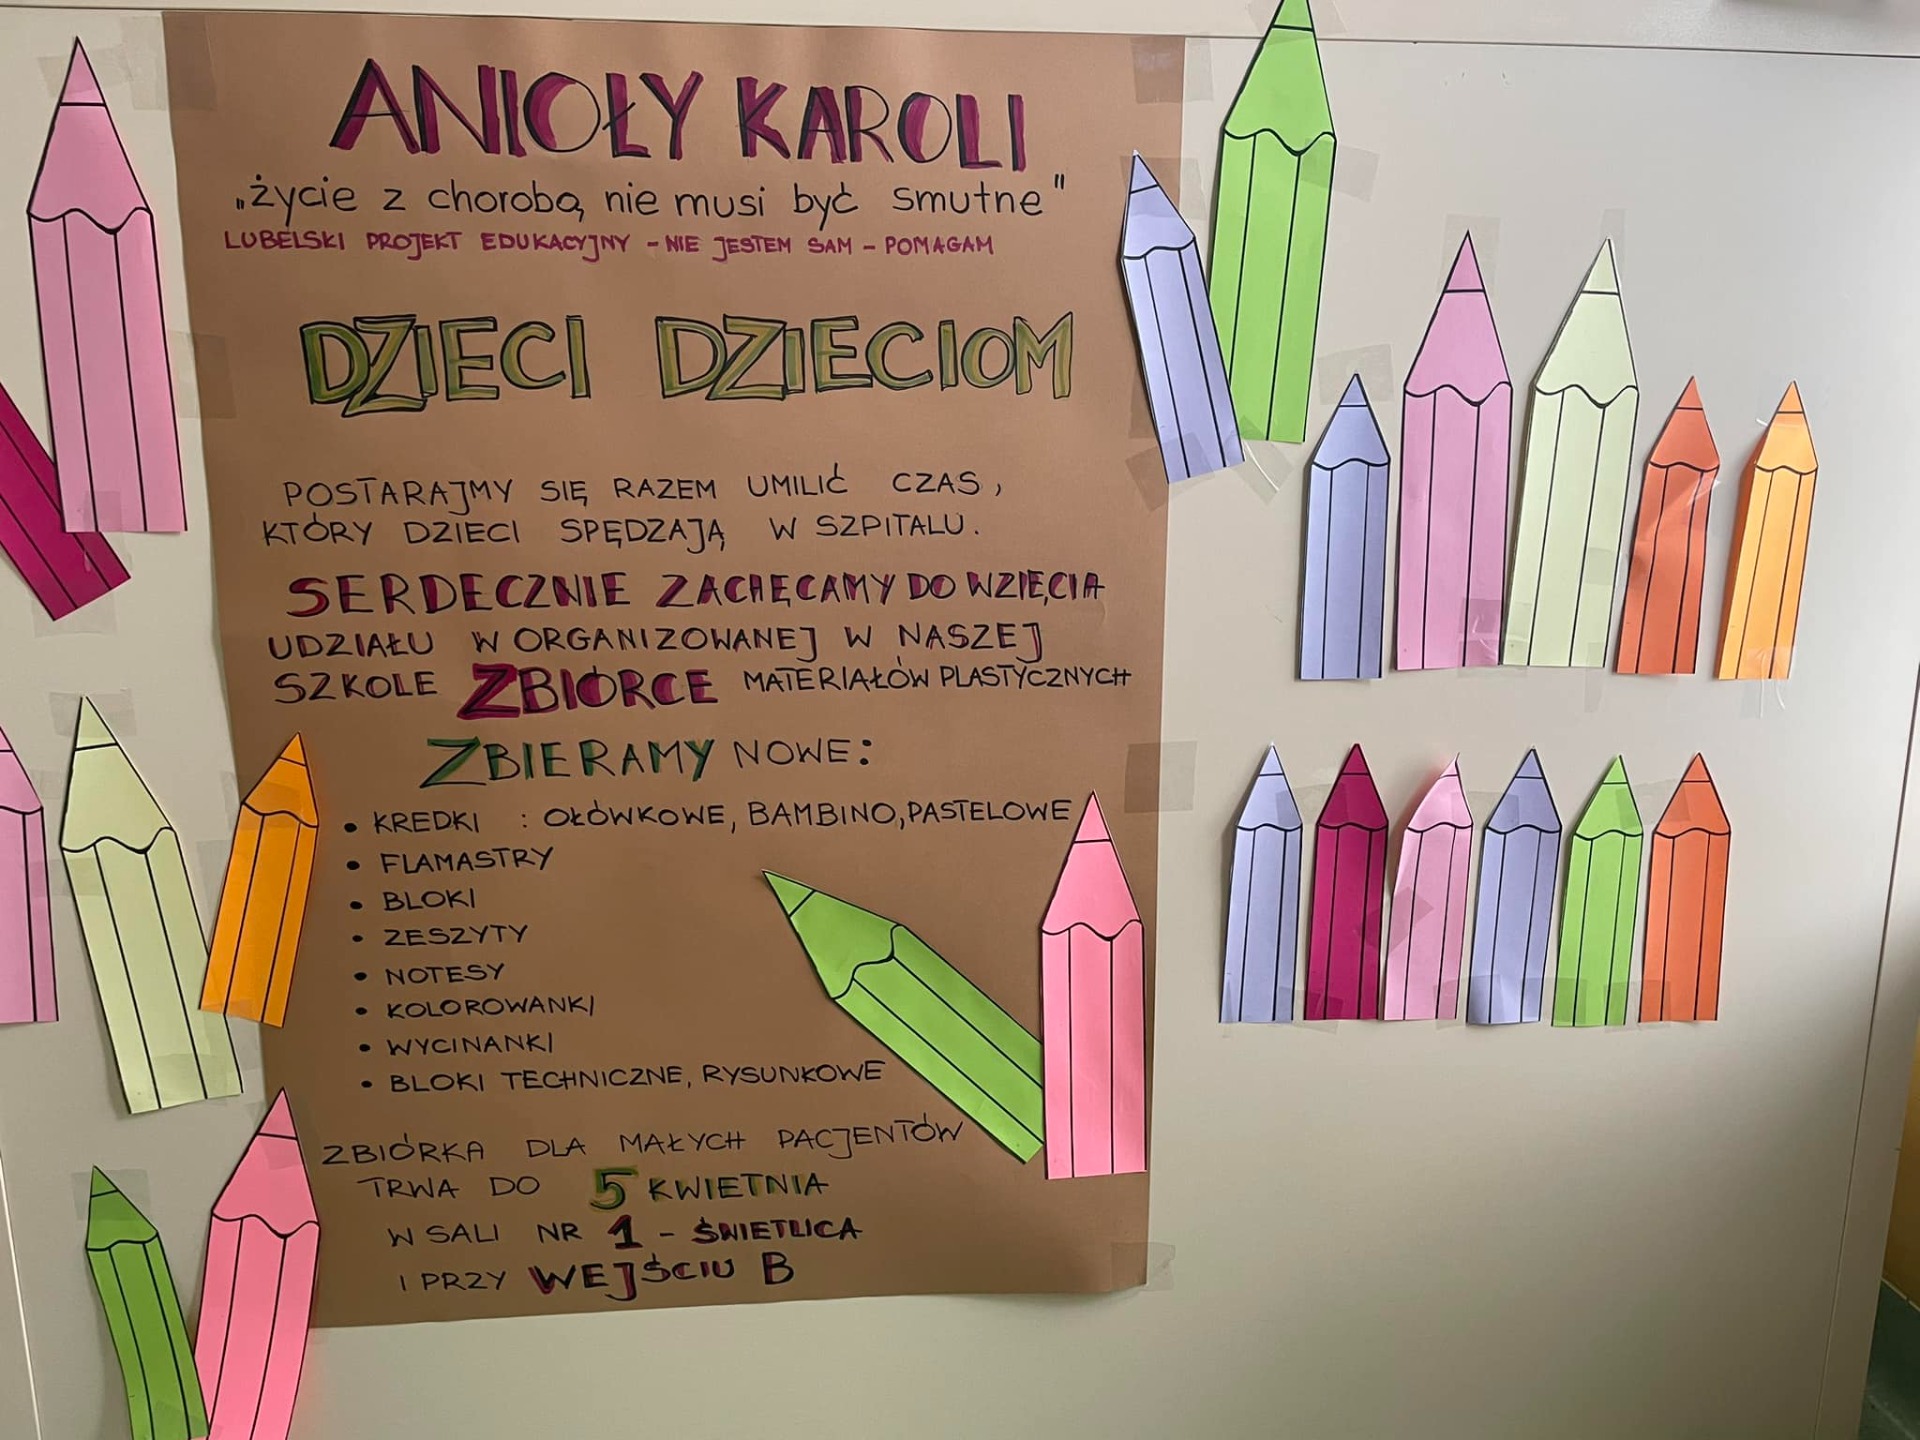 ANIOŁY KAROLI
„życie z chorobą nie musi być smutne"
LUBELSKI PROJEKT EDUKACYJNY - NIE JESTEM SAM - POMAGAM
DZIECI DZIECIOM
POSTARAJMY SIĘ RAZEM UMILIĆ CZAS,
KTÓRY DZIECI SPĘDZAJĄ W SZPITALU.
SERDECZNIE ZACHĘCAMY DO WZIĘCIA
UDZIAŁU W ORGANIZOWANEJ W NASZEJ
SZKOLE ZBIÓRCE MATERIAŁÓW PLASTYCZNYCH
ZBIERAMY NOWE:
• KREDKI : OŁÓWKOWE, BAMBINO, PASTELOWE
• FLAMASTRY
• BLOKI
• ZESZYTY
• NOTESY
• KOLOROWANKI
• WYCINANKI
• BLOKI TECHNICZNE, RYSUNKOWE
ZBIÓRKA DLA MAŁYCH PACJENTÓW
TRWA DO 5 KWIETNIA
W SALI NR 1 - ŚWIETLICA
I PRZY WEJŚCIU B